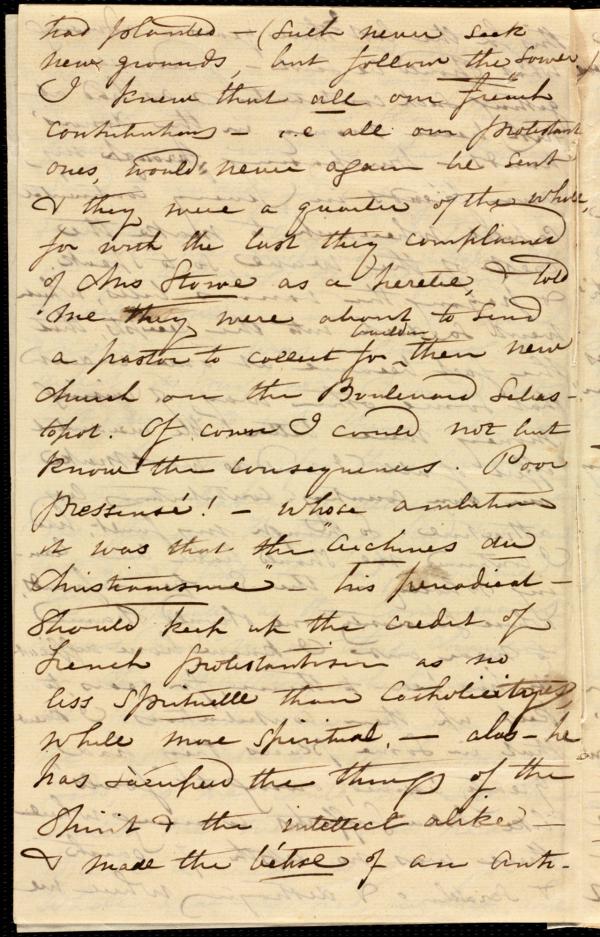 had planted — (such never seek
new grounds, but follow the sower.)
I knew that all our "french"
contributions — i.e all our protestant
ones, would never again be sent
& they were a quarter of the whole,
for with the last they complained
of Mrs Stowe as a heretic, & told
me they were about to send
a pastor to collect for building their new
church on the Boulevard Sebas-
topol. Of course I could not but
know the consequences. Poor
Pressensé! — whose ambition
it was that the "Archives du
Christianisme" — his periodical —
should keep up the credit of
French protestantism as no
less spirituelle than Catholicity
while more spiritual, — alas — he
has sacrificed the things of the
Spirit & the intellect alike —
& made the bêtise of an anti-